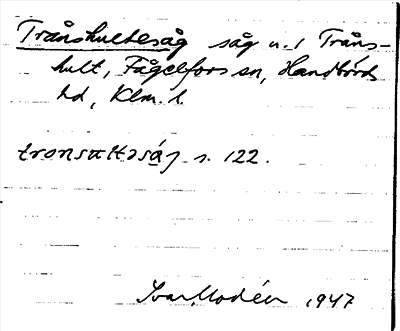 Trånshultesåg såg u. 1 Tråns-
hult, Fågelfors sn, Handbörds
hd, Klm. l.
tronsaltəság s. 122.
Ivar Modéer 1947